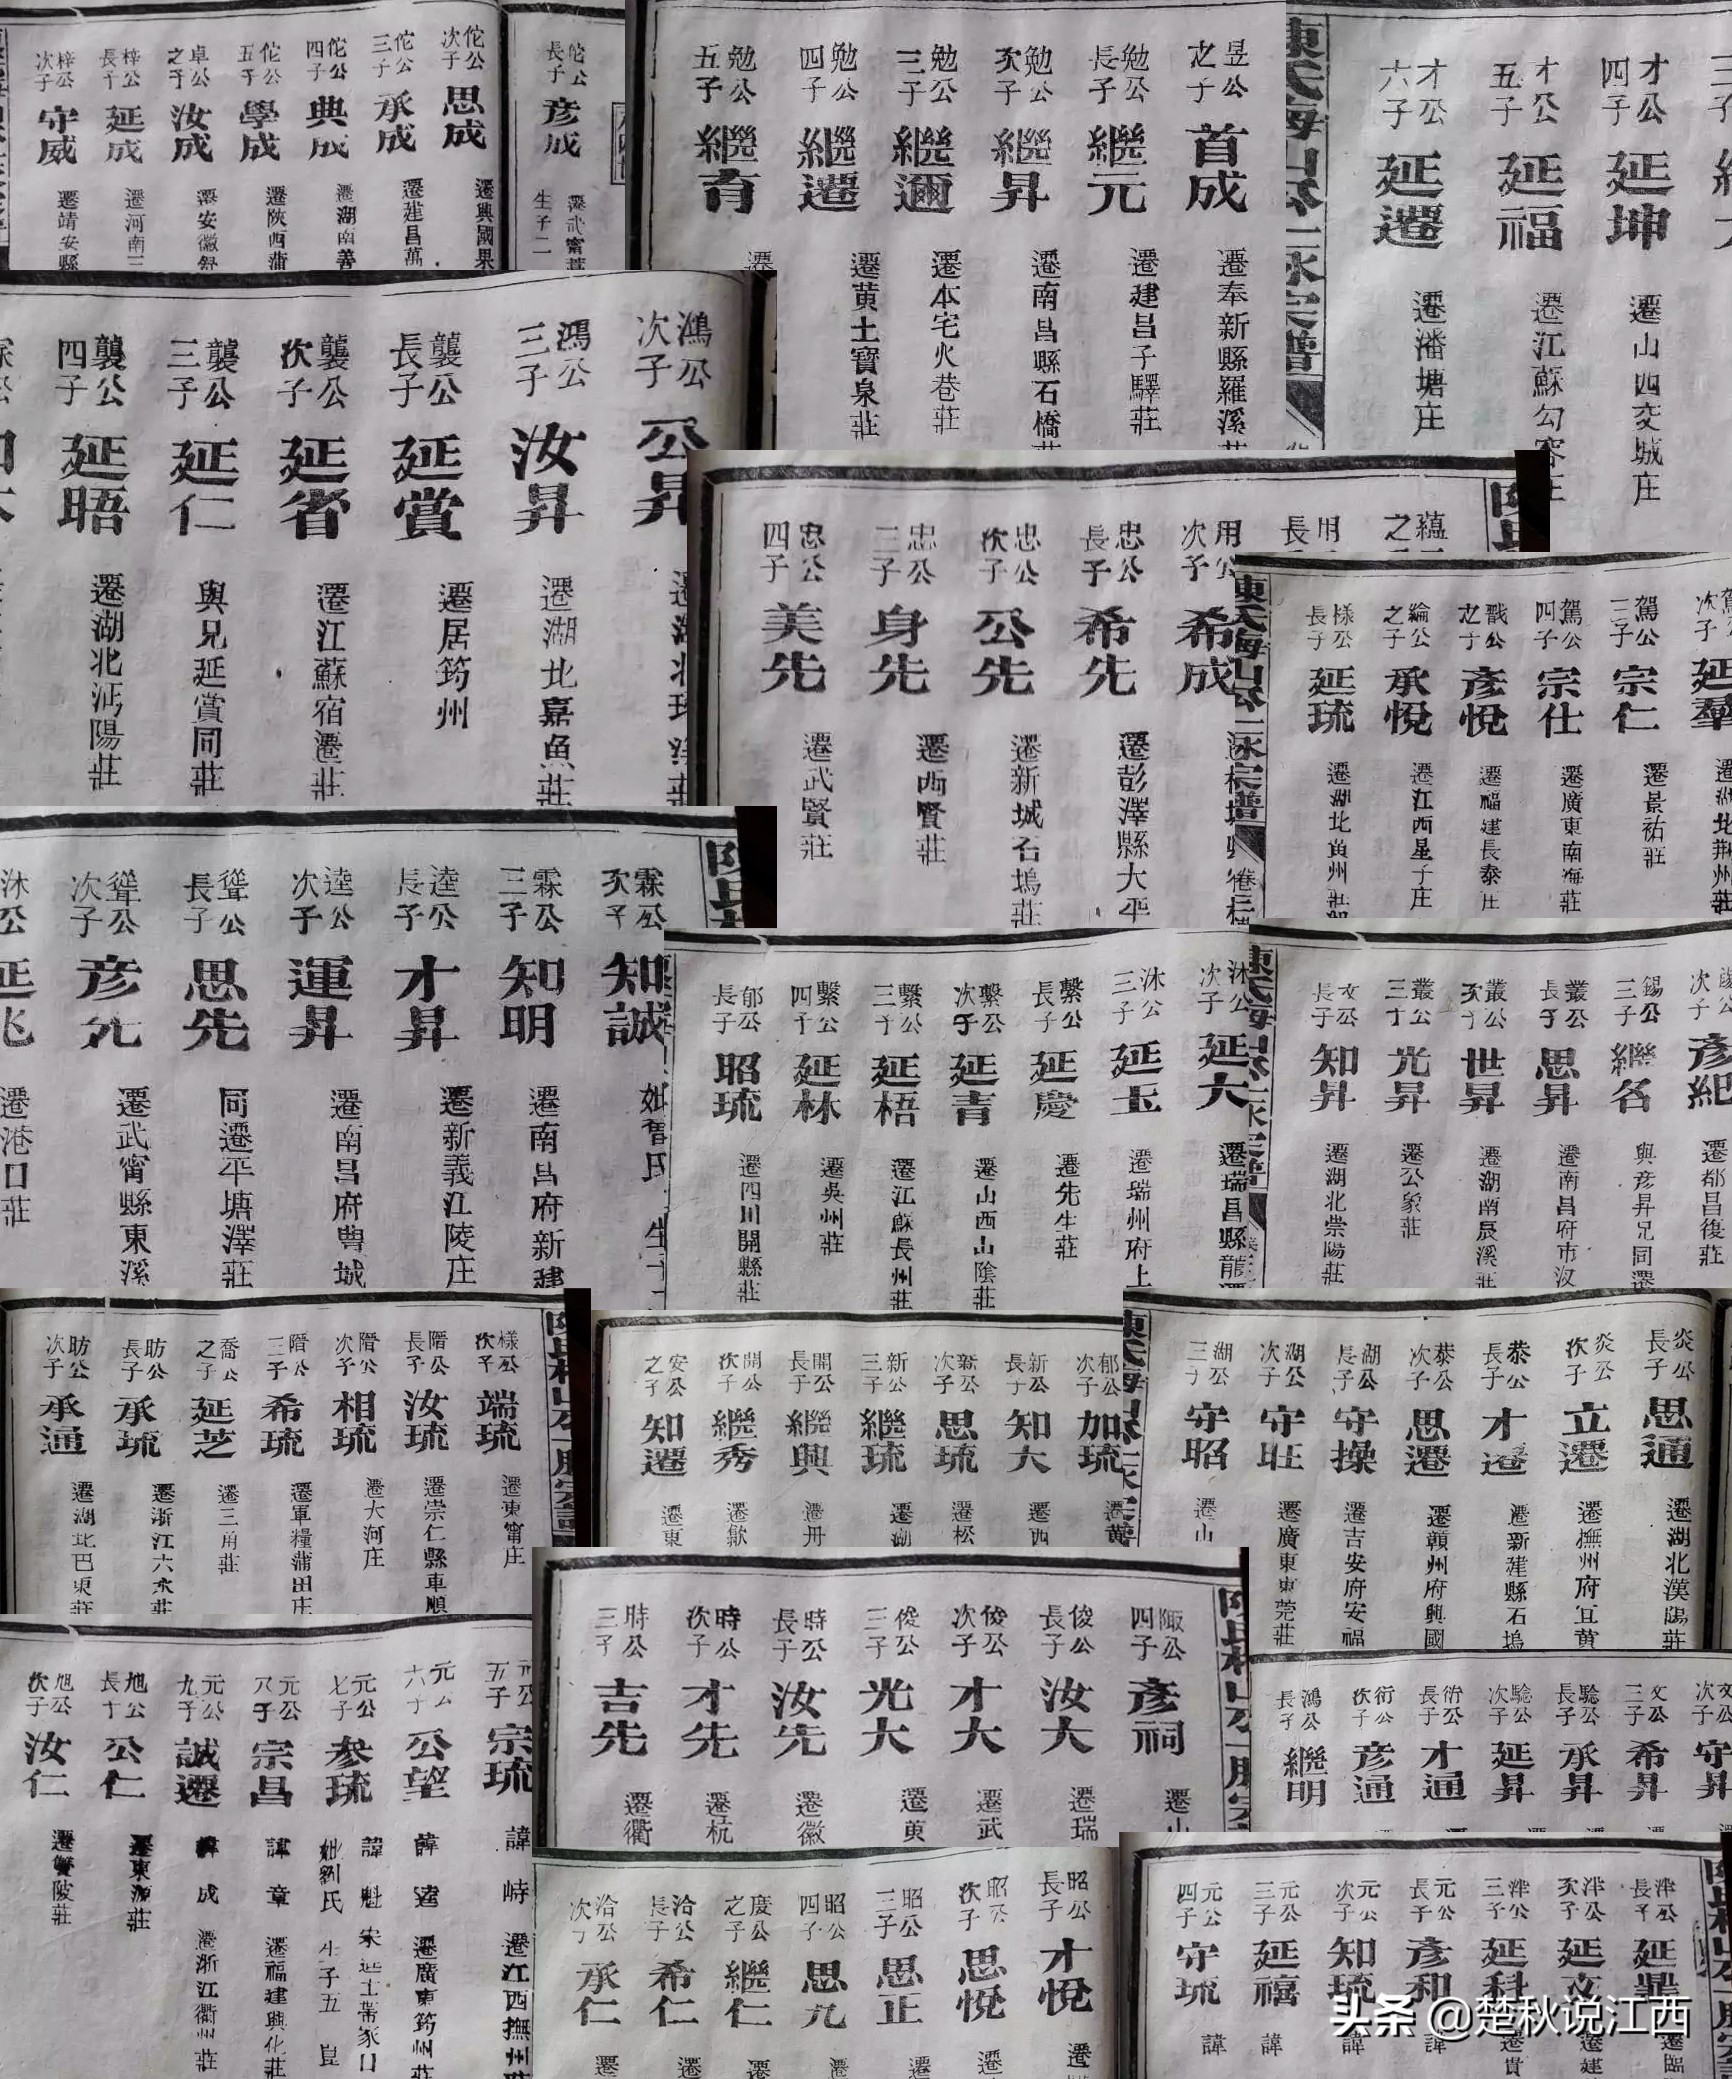 佗公次子 思成 遷興國果
佗公三子 承成 遷建昌萬
佗公四子 典成 遷湖南善
佗公五子 學成 遷陝西蒲
卓公之子 汝成 遷安徽舒
梓公長子 延成 遷河南三
梓公次子 守威 遷靖安縣
佗公長子 彦成 遷武甯
生子二
昱公之子 首成 遷奉新縣羅溪莊
勉公長子 繼元 遷建昌子驛莊
勉公次子 繼昇 遷南昌縣石橋莊
勉公三子 繼邇 遷本宅火巷莊
勉公四子 繼遷 遷黄土寶泉莊
勉公五子 繼育 遷
才公四子 延坤 遷山西交城庄
才公五子 延福 遷江蘇勾容庄
才公六子 延遷 遷潘塘庄
鴻公次子 公昇
鴻公三子 汝昇 遷湖北嘉魚莊
襲公長子 延賞 遷居筠州
襲公次子 延省 遷江蘇宿遷莊
襲公三子 延仁 與兄延賞同莊
襲公四子 延晤 遷湖北沔陽莊
用公次子 希成
忠公長子 希先 遷彭澤縣大平
忠公次子 公先 遷新城石塢莊
忠公三子 身先 遷西賢莊
忠公四子 美先 遷武賢莊
延羣 遷湖北荆州莊
駕公三子 宗仁 遷景祐莊
駕公四子 宗仕 遷廣東南海莊
戬公之子 彦悦 遷福建長泰庄
綸公之子 承悅 遷江西星子庄
樣公長子 延琉 遷湖北黄州莊
霖公次子 知誠
霖公三子 知明 遷南昌府新建
逵公長子 才昇 遷新義江陵庄
逵公次子 運昇 遷南昌府豊城
聳公長子 思先 同遷平塘澤莊
聳公次子 彦先 遷武甯縣東溪
沐公 延兆 遷港口莊
沐公次子 延大 遷瑞昌縣龍
沐公三子 延玉 遷瑞州府上
繫公長子 延慶 遷先生莊
繫公次子 延吉 遷山西山陰莊
繫公三子 延梧 遷江蘇長州莊
繫公四子 延林 遷吳州莊
郁公長子 昭琉 遷四川開縣莊
錫公次子 彦紀 遷都昌後莊
錫公三子 繼名 與彦昇兄同遷
叢公長子 思昇 遷南昌府市汊
叢公次子 世昇 遷湖南辰溪莊
叢公三子 光昇 遷公象莊
文公長子 知昇 遷湖北崇陽莊
樣公次子 端琉 遷東甯庄
階公長子 汝琉 遷崇仁縣車順
階公次子 相琉 遷大河庄
階公三子 希琉 遷軍糧蒲田庄
喬公之子 延芝 遷三角莊
昉公長子 承琉 遷浙江六水莊
昉公次子 承通 遷湖北巴東莊
郁公次子 加琉 遷黄
新公長子 知大 遷西
新公次子 思琉 遷松
新公三子 繼琉 遷湖
開公長子 繼興 遷丹
開公次子 繼秀 遷歙
安公之子 知遷 遷東
炎公長子 思通 遷湖北漢陽莊
炎公次子 立遷 遷撫州府宜黄
恭公長子 才遷 遷新建縣石塢
恭公次子 思遷 遷贛州府興國
湖公長子 守操 遷吉安府安福
湖公次子 守旺 遷廣東東莞莊
湖公三子 守昭 遷山
陬公四子 彦祠 遷山
俊公長子 汝大 遷瑞
俊公次子 才大 遷武
俊公三子 光大 遷黄
時公長子 汝先 遷徽
時公次子 才先 遷杭
時公三子 吉先 遷衢
文公次子 守昇
文公三子 希昇
驗公長子 承昇
驗公次子 延昇
衍公長子 才通
衍公次子 彦通
鴻公長子 繼明
元公五子 宗琉 諱峙 遷江西撫州
元公六子 公望 諱逵 遷廣東筠州莊
元公七子 參琉 諱魁 宋進士
妣劉氏 生子五
元公八子 宗昌 諱章 遷福建興化莊
元公九子 誠遷 諱成 遷浙江衢州莊
旭公長子 公仁 遷東源莊
旭公次子 汝仁 遷雙陂莊
昭公長子 才悅 遷
昭公次子 思悅 遷
昭公三子 思正 遷
昭公四子 思九 遷
慶公之子 繼仁 遷
洽公長子 希仁 遷
洽公次子 承仁 遷
泮公長子 延鼎 遷臨
泮公次子 延文 遷建
泮公三子 延科 遷貴
元公長子 彦和 諱
元公次子 知琉 諱
元公三子 延禧 諱
元公四子 守琉 諱
头条 @楚秋说江西